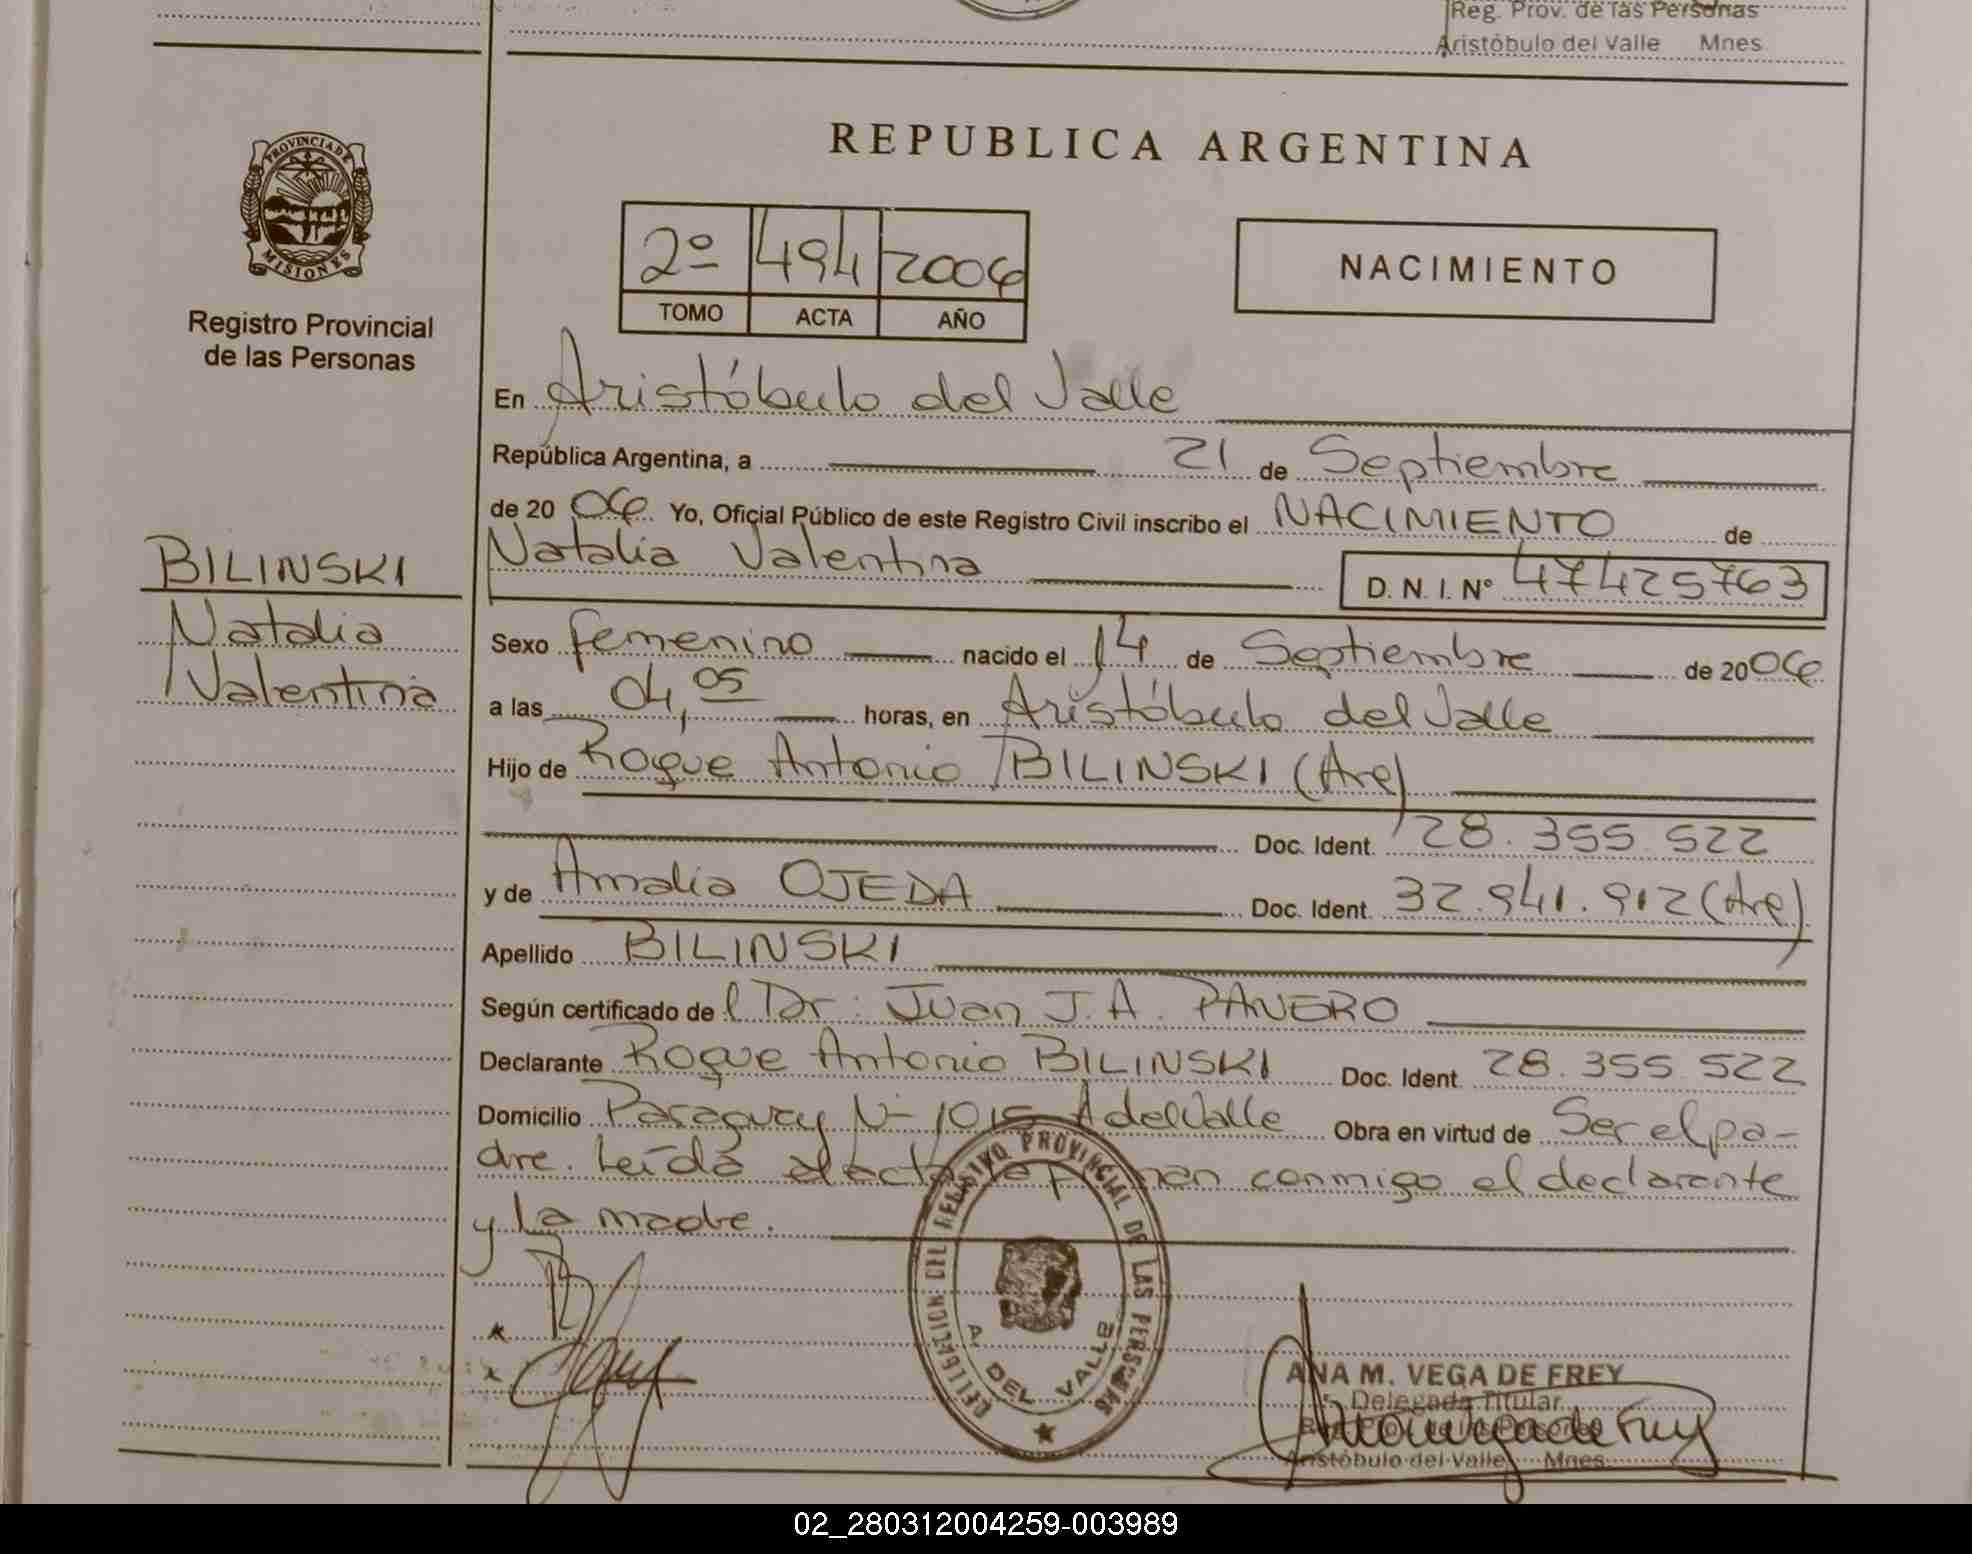 Reg. Prov. de las Personas
Aristóbulo del Valle Mnes
PROVINCIA DE
MISIONES
Registro Provincial
de las Personas
REPUBLICA ARGENTINA
2º 494 2006
TOMO ACTA AÑO
NACIMIENTO
En Aristóbulo del Valle
República Argentina, a 21 de Septiembre
de 2006 Yo, Oficial Público de este Registro Civil inscribo el NACIMIENTO de
Natalia Valentina D. N. I. Nº 47425763
BILINSKI
Natalia
Valentina
Sexo femenino nacido el 14 de Septiembre de 2006
a las 04,05 horas, en Aristóbulo del Valle
Hijo de Roque Antonio BILINSKI (Arg)
Doc. Ident. 28.355.522
y de Amalia OJEDA Doc. Ident. 32.941.912 (Arg)
Apellido BILINSKI
Según certificado del Dr: Juan J.A. PANERO
Declarante Roque Antonio BILINSKI Doc. Ident. 28.355.522
Domicilio Paraguay Nº 1015 A del Valle Obra en virtud de Ser el pa-
dre. Leída el acta la firman conmigo el declarante
y la madre.
DELEGACION DEL REGISTRO PROVINCIAL DE LAS PERSONAS
A. DEL VALLE
ANA M. VEGA DE FREY
Delegada Titular
Aristóbulo del Valle Mnes
02_280312004259-003989